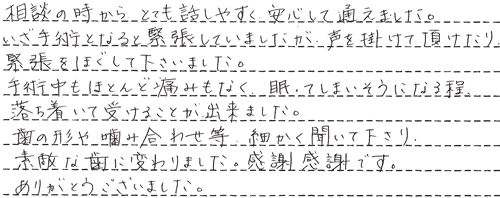 相談の時から とても話しやすく、安心して通えました。
いざ手術となると緊張していましたが、声を掛けて頂けたり、
緊張をほぐして下さいました。
手術中もほとんど痛みもなく、眠ってしまいそうになる程、
落ち着いて受けることが出来ました。
歯の形や噛み合わせ等、細かく聞いて下さり、
素敵な歯に変わりました。感謝感謝です。
ありがとうございました。